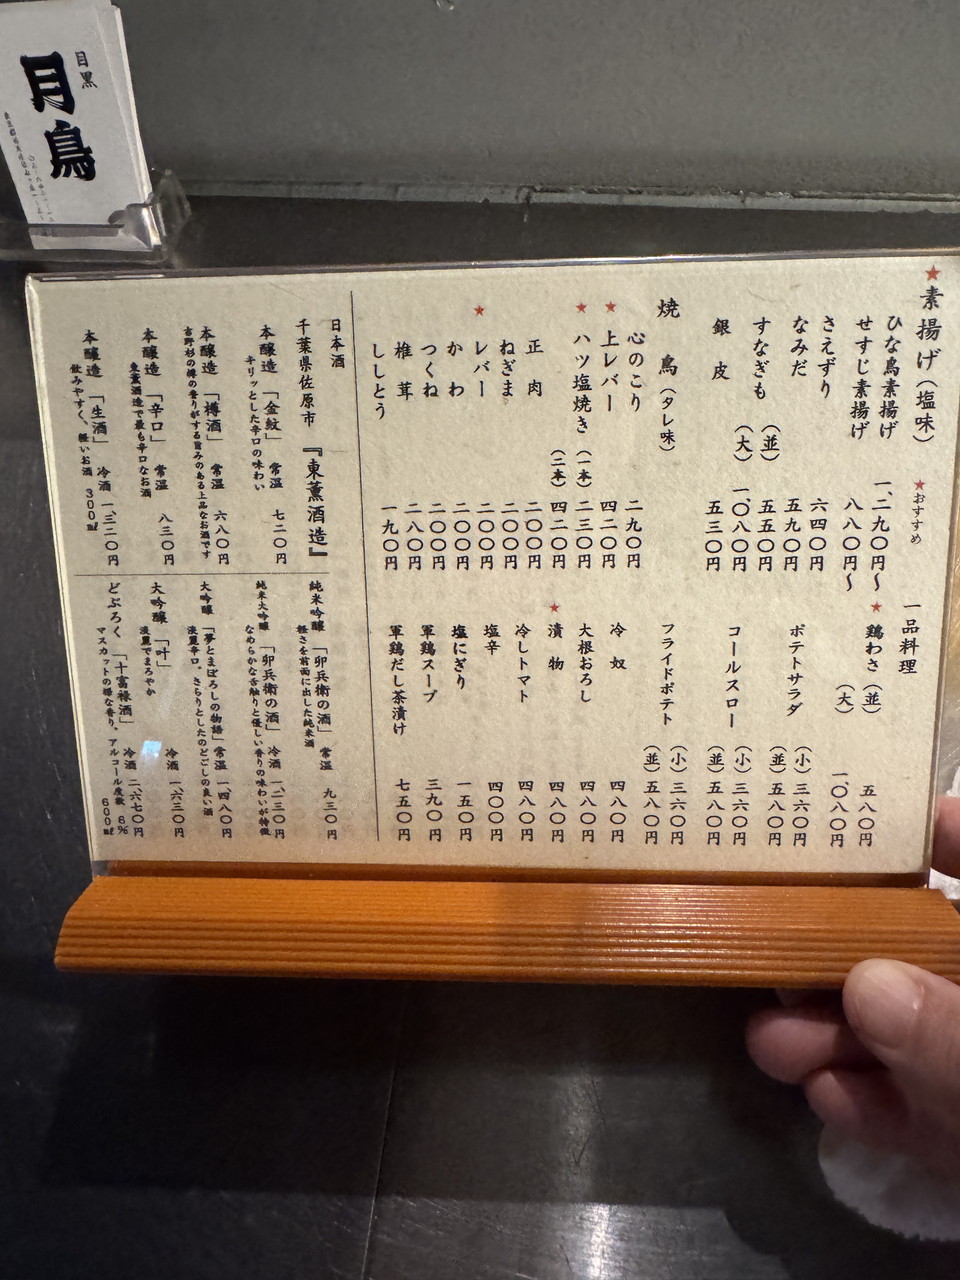 目黒
月鳥
★素揚げ(塩味)
★おすすめ
ひな鳥素揚げ 一、二九〇円〜
せすじ素揚げ 八八〇円〜
さえずり 六四〇円
なみだ 五九〇円
すなぎも (並) 五五〇円
(大) 一、〇八〇円
銀皮 五三〇円
焼鳥(タレ味)
心のこり 二九〇円
★上レバー 四二〇円
★ハツ塩焼き (一本) 二三〇円
(二本) 四二〇円
正肉 二〇〇円
ねぎま 二〇〇円
★レバー 二〇〇円
かわ 二〇〇円
つくね 二〇〇円
椎茸 二八〇円
ししとう 一九〇円
一品料理
★鶏わさ (並) 五八〇円
(大) 一、〇八〇円
ポテトサラダ (小) 三六〇円
(並) 五八〇円
コールスロー (小) 三六〇円
(並) 五八〇円
フライドポテト (小) 三六〇円
(並) 五八〇円
冷奴 四八〇円
大根おろし 四八〇円
★漬物 四八〇円
冷しトマト 四八〇円
塩辛 四〇〇円
塩にぎり 一五〇円
軍鶏スープ 三九〇円
軍鶏だし茶漬け 七五〇円
日本酒
千葉県佐原市 『東薫酒造』
本醸造 「金紋」 常温 七二〇円
キリッとした辛口の味わい
本醸造 「樽酒」 常温 六八〇円
吉野杉の樽の香りがする旨みのある上品なお酒です
本醸造 「辛口」 常温 八三〇円
東薫酒造で最も辛口なお酒
本醸造 「生酒」 冷酒 一、三二〇円
飲みやすく、軽いお酒 300㎖
純米吟醸 「卯兵衛の酒」 常温 九三〇円
軽さを前面に出した純米酒
純米大吟醸 「卯兵衛の酒」 冷酒 一、二三〇円
なめらかな舌触りと優しい香りの味わいが特徴
大吟醸 「夢とまぼろしの物語」 常温 一、四八〇円
淡麗辛口。さらりとしたのどごしの良い酒
大吟醸 「叶」 冷酒 一、六三〇円
淡麗でまろやか
どぶろく 「十富禄酒」 冷酒 二、六七〇円
マスカットの様な香り。アルコール度数 6% 600㎖